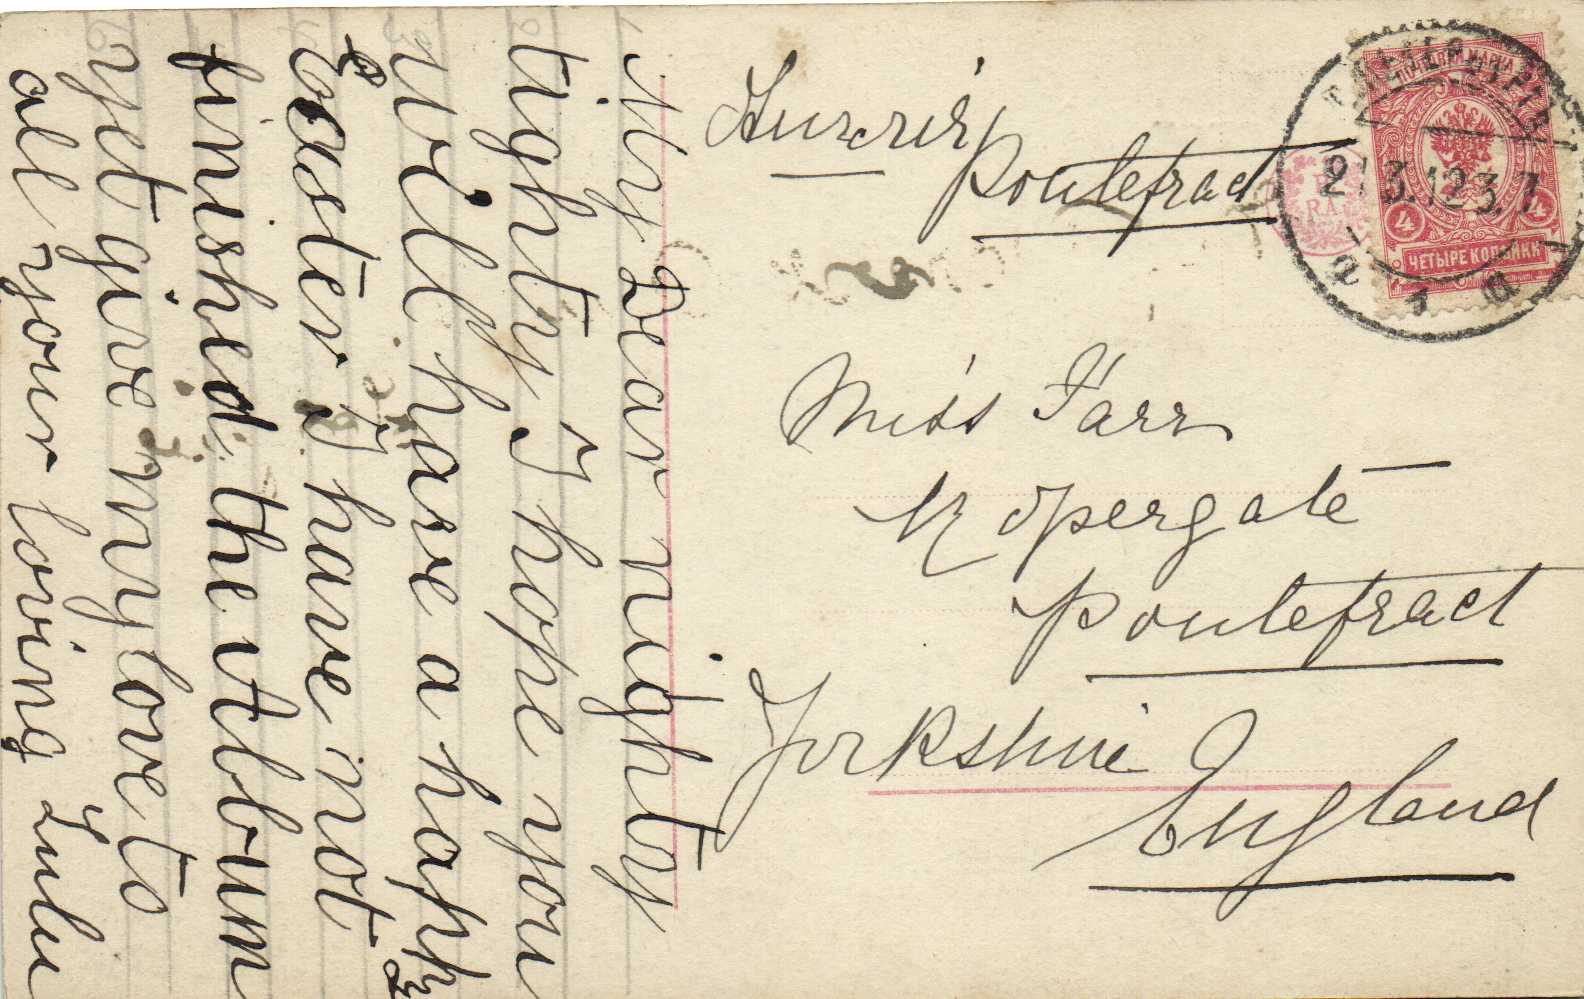 My Dear nighty
tighty I hope you
will have a happy
Easter I have not
finished the Album
yet give my love to
all your loving Lulu
Pontefract
Miss Farr
Ropergate
Pontefract
Yorkshire
England
21 3.12 3.7
4 4
ЧЕТЫРЕ КОПѢЙКИ